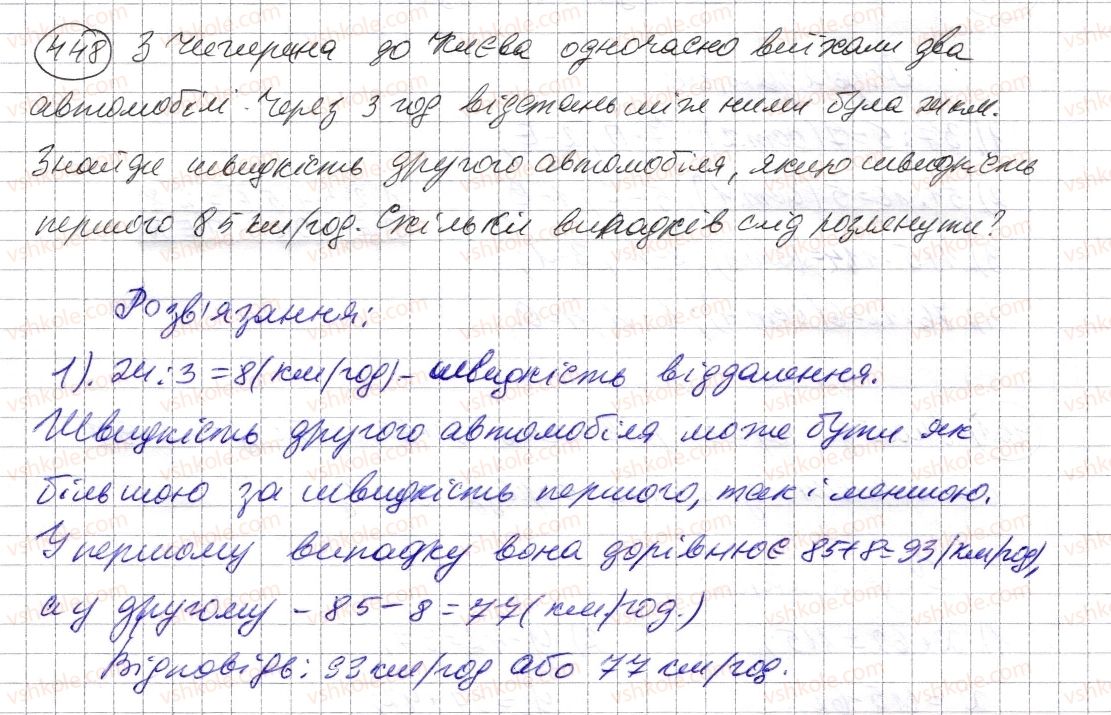 448 З Чигирина до Києва одночасно виїхали два
автомобілі. Через 3 год відстань між ними була 24 км.
Знайди швидкість другого автомобіля, якщо швидкість
першого 85 км/год. Скільки випадків слід розглянути?
Розв'язання:
1). 24:3=8(км/год)- швидкість віддалення.
Швидкість другого автомобіля може бути як
більшою за швидкість першого, так і меншою.
У першому випадку вона дорівнює 85+8=93(км/год),
а у другому - 85-8=77(км/год.)
Відповідь: 93 км/год або 77 км/год.